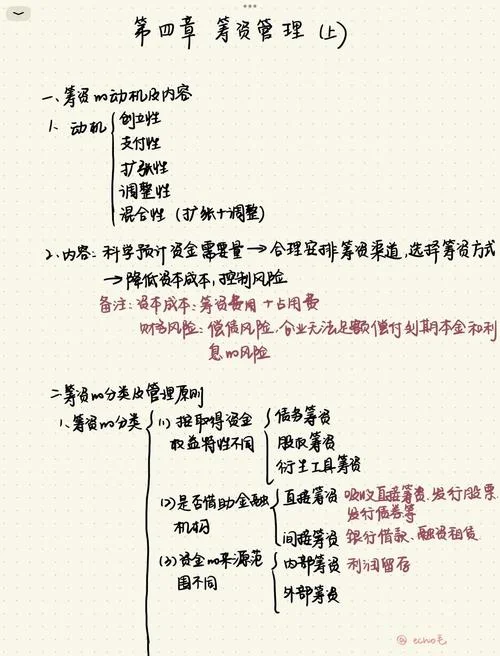 第四章 筹资管理(上)
一、筹资的动机及内容
1、动机
创立性
支付性
扩张性
调整性
混合性(扩张+调整)
2、内容:科学预计资金需要量→合理安排筹资渠道,选择筹资方式
→降低资本成本,控制风险
备注:资本成本:筹资费用+占用费
财务风险:偿债风险,企业无法足额偿付到期本金和利
息的风险
二筹资的分类及管理原则
1、筹资的分类
(1)按取得资金
权益特性不同
债务筹资
股权筹资
衍生工具筹资
(2)是否借助金融
机构
直接筹资 吸收直接筹资、发行股票、
发行债券等
间接筹资 银行借款、融资租赁
(3)资金的来源范
围不同
内部筹资 利润留存
外部筹资
@echo毛